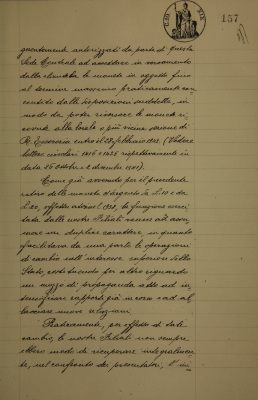 157
quantemente autorizzati da parte di questa
Sede Centrale ad assistere in movimento
della clientela le monete in oggetto fino
al termine massimo praticamente con
sentito dalle disposizioni suddette, in
modo da poter riversare le monete ri
cevute alla locale o più vicina sezione di
R. Tesoreria entro il 28 febbraio 1932. (Vedere
lettere circolari 1416 e 1425 rispettivamente in
data 26 ottobre e 2 dicembre 1931).
Come già avvenuto per il precedente
ritiro delle monete d'argento da L. 10 e da
L. 20, effettuatosi nel 1930, la funzione eserci
tata dalle nostre Filiali venne ad assu
mere un duplice carattere, in quanto
facilitava da una parte le operazioni
di cambio nell'interesse superiore dello
Stato, costituendo per altro riguardo
un mezzo di propaganda atto ad in
tensificare rapporti già in corso ed al
lacciare nuove relazioni.
Praticamente, per effetto di tale
cambio, le nostre Filiali non sempre
ebbero modo di recuperare integralmen
te, nei confronti dei presentatori, l'im